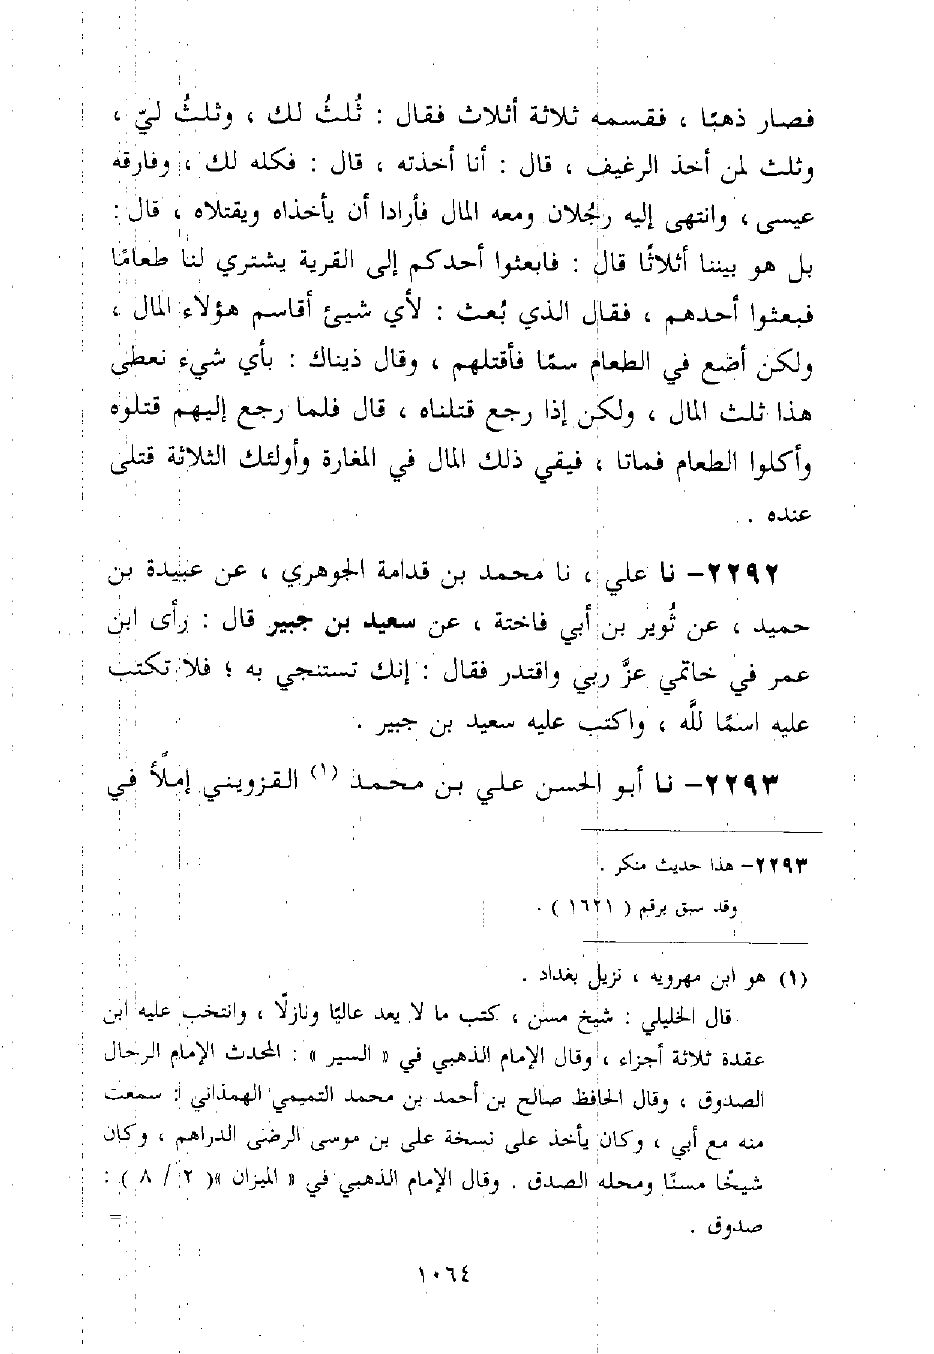 فصار ذهبًا ، فقسمه ثلاثة أثلاث فقال : ثُلثُ لك ، وثلثُ ليّ ،
وثلث لمن أخذ الرغيف ، قال : أنا أخذته ، قال : فكله لك ، وفارقه
عيسى ، وانتهى إليه رجُلان ومعه المال فأرادا أن يأخذاه ويقتلاه ، قال :
بل هو بيننا أثلاثًا قال : فابعثوا أحدكم إلى القرية يشتري لنا طعامًا
فبعثوا أحدهم ، فقال الذي بُعث : لأي شيئ أقاسم هؤلاء المال ،
ولكن أضع في الطعام سمًا فأقتلهم ، وقال ذيناك : بأي شيء نعطى
هذا ثلث المال ، ولكن إذا رجع قتلناه ، قال فلما رجع إليهم قتلوه
وأكلوا الطعام فماتا ، فبقي ذلك المال في المغارة وأولئك الثلاثة قتلى
عنده .
٢٢٩٢- نا علي ، نا محمد بن قدامة الجوهري ، عن عبيدة بن
حميد ، عن ثُوير بن أبي فاختة ، عن سعيد بن جبير قال : رأى ابن
عمر في خاتمي عزَّ ربي واقتدر فقال : إنك تستنجي به ؛ فلا تكتب
عليه اسمًا للَّه ، واكتب عليه سعيد بن جبير .
٢٢٩٣- نا أبو الحسن علي بن محمد (١) القزويني إملأً في
٢٢٩٣- هذا حديث منكر .
وقد سبق برقم ( ١٦٢١ ) .
(١) هو ابن مهرويه ، نزيل بغداد .
قال الخليلي : شيخ مسن ، كتب ما لا يعد عاليًا ونازلًا ، وانتخب عليه ابن
عقدة ثلاثة أجزاء ، وقال الإمام الذهبي في « السير » : المحدث الإمام الرحال
الصدوق ، وقال الحافظ صالح بن أحمد بن محمد التميمي الهمذاني : سمعت
منه مع أبي ، وكان يأخذ على نسخة على بن موسى الرضى الدراهم ، وكان
شيخًا مسنًا ومحله الصدق . وقال الإمام الذهبي في « الميزان »( ٢ / ٨ ) :
صدوق .
=
١٠٦٤